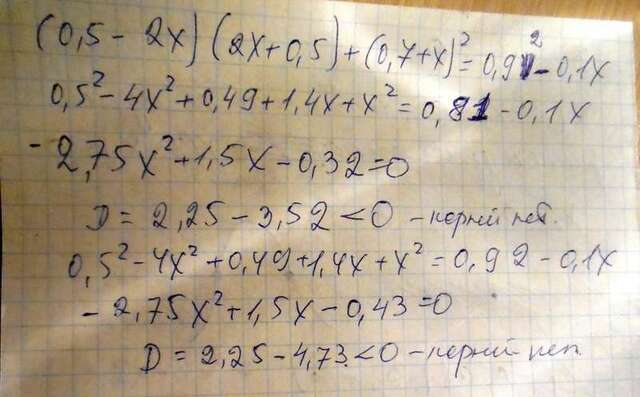 (0,5 - 2x)(2x+0,5)+(0,7+x)²=0,9²-0,1x
0,5²-4x²+0,49+1,4x+x²=0,81-0,1x
-2,75x²+1,5x-0,32=0
D=2,25-3,52<0 - корней нет.
0,5²-4x²+0,49+1,4x+x²=0,92-0,1x
-2,75x²+1,5x-0,43=0
D=2,25-4,73<0 - корней нет.